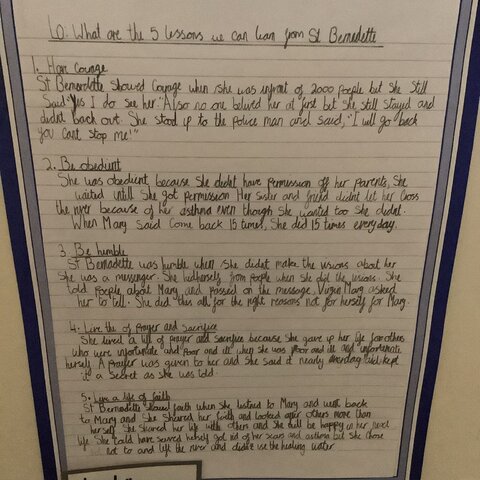 LO: What are the 5 lessons we can learn from St Benedette
1. Have Courage
St Bernerdette Showed Courage when she was infront of 2000 people but She Still
Said "Yes I do see her." Also no one belived her at first but she still stayed and
didnt back out. She stood up to the police man and said, "I will go back
you cant stop me!"
2. Be obedient
She was obedient, because She didnt have permission off her parents, She
waited until She got permission. Her Sister and friend didnt let her Cross
the river because of her asthma even though She wanted too She didnt.
When Mary Said Come back 15 times, She did 15 times everyday.
3. Be humble
St Bernadette was humble when she didnt make the visions about her
She was a messenger. She hid herself from people when she did the visions. She
told People about Mary and Passed on the message Virgin Mary asked
her to tell. She did this all for the right reasons not for herself for Mary.
4. Live life of Prayer and Sacrifice
She lived a life of prayer and Sacrifice because She gave up her life for others
who were unfortunate and Poor and ill when she was Poor and ill and unfortunate
herself. A Prayer was given to her and She Said it nearly everyday and kept
it a Secret as She was told.
5. Live a life of faith
St Bernadette showed faith when She listned to Mary and went back
to Mary and She Shared her faith and looked after others more than
herself. She Shared her life with others and She will be happy in her next
life. She Could have saved herself got rid of her scars and asthma but She chose
not to and left the river and didnt use the healing water.